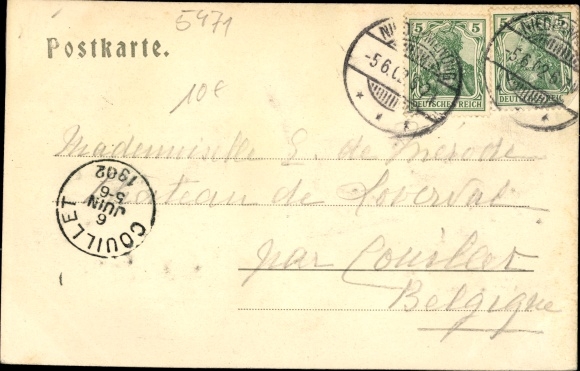 5471
Postkarte.
5
DEUTSCHES REICH
5
DEUTSCHES REICH
-5.6.02
-5.6.02
10e
Mademoiselle G. de Merode
Chateau de Loverval
par Couillet
Belgique
COUILLET
6
JUIN
5-6
1902